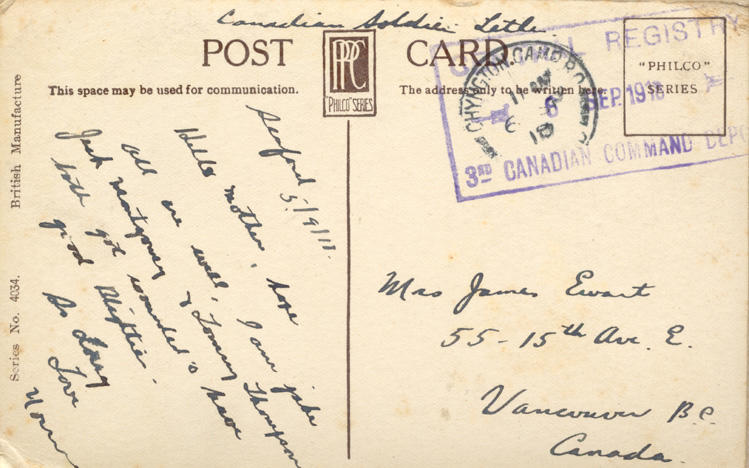 Canadian Soldier Letter
POST CARD.
PPC
"PHILCO" SERIES
This space may be used for communication.
The address only to be written here.
"PHILCO"
SERIES
REGISTRY
6 SEP. 1918
3RD CANADIAN COMMAND DEPO
CHYNGTON CAMP
British Manufacture
Series No. 4034.
Seaford
5/9/18.
Hello mother, hope
all are well, I am jake
Jack Montgomery & Tommy Thompson
both got wounded & have
good Blightie.
So Long
Love
Norm
Mrs James Ewart
55-15th Ave. E.
Vancouver B.C.
Canada.